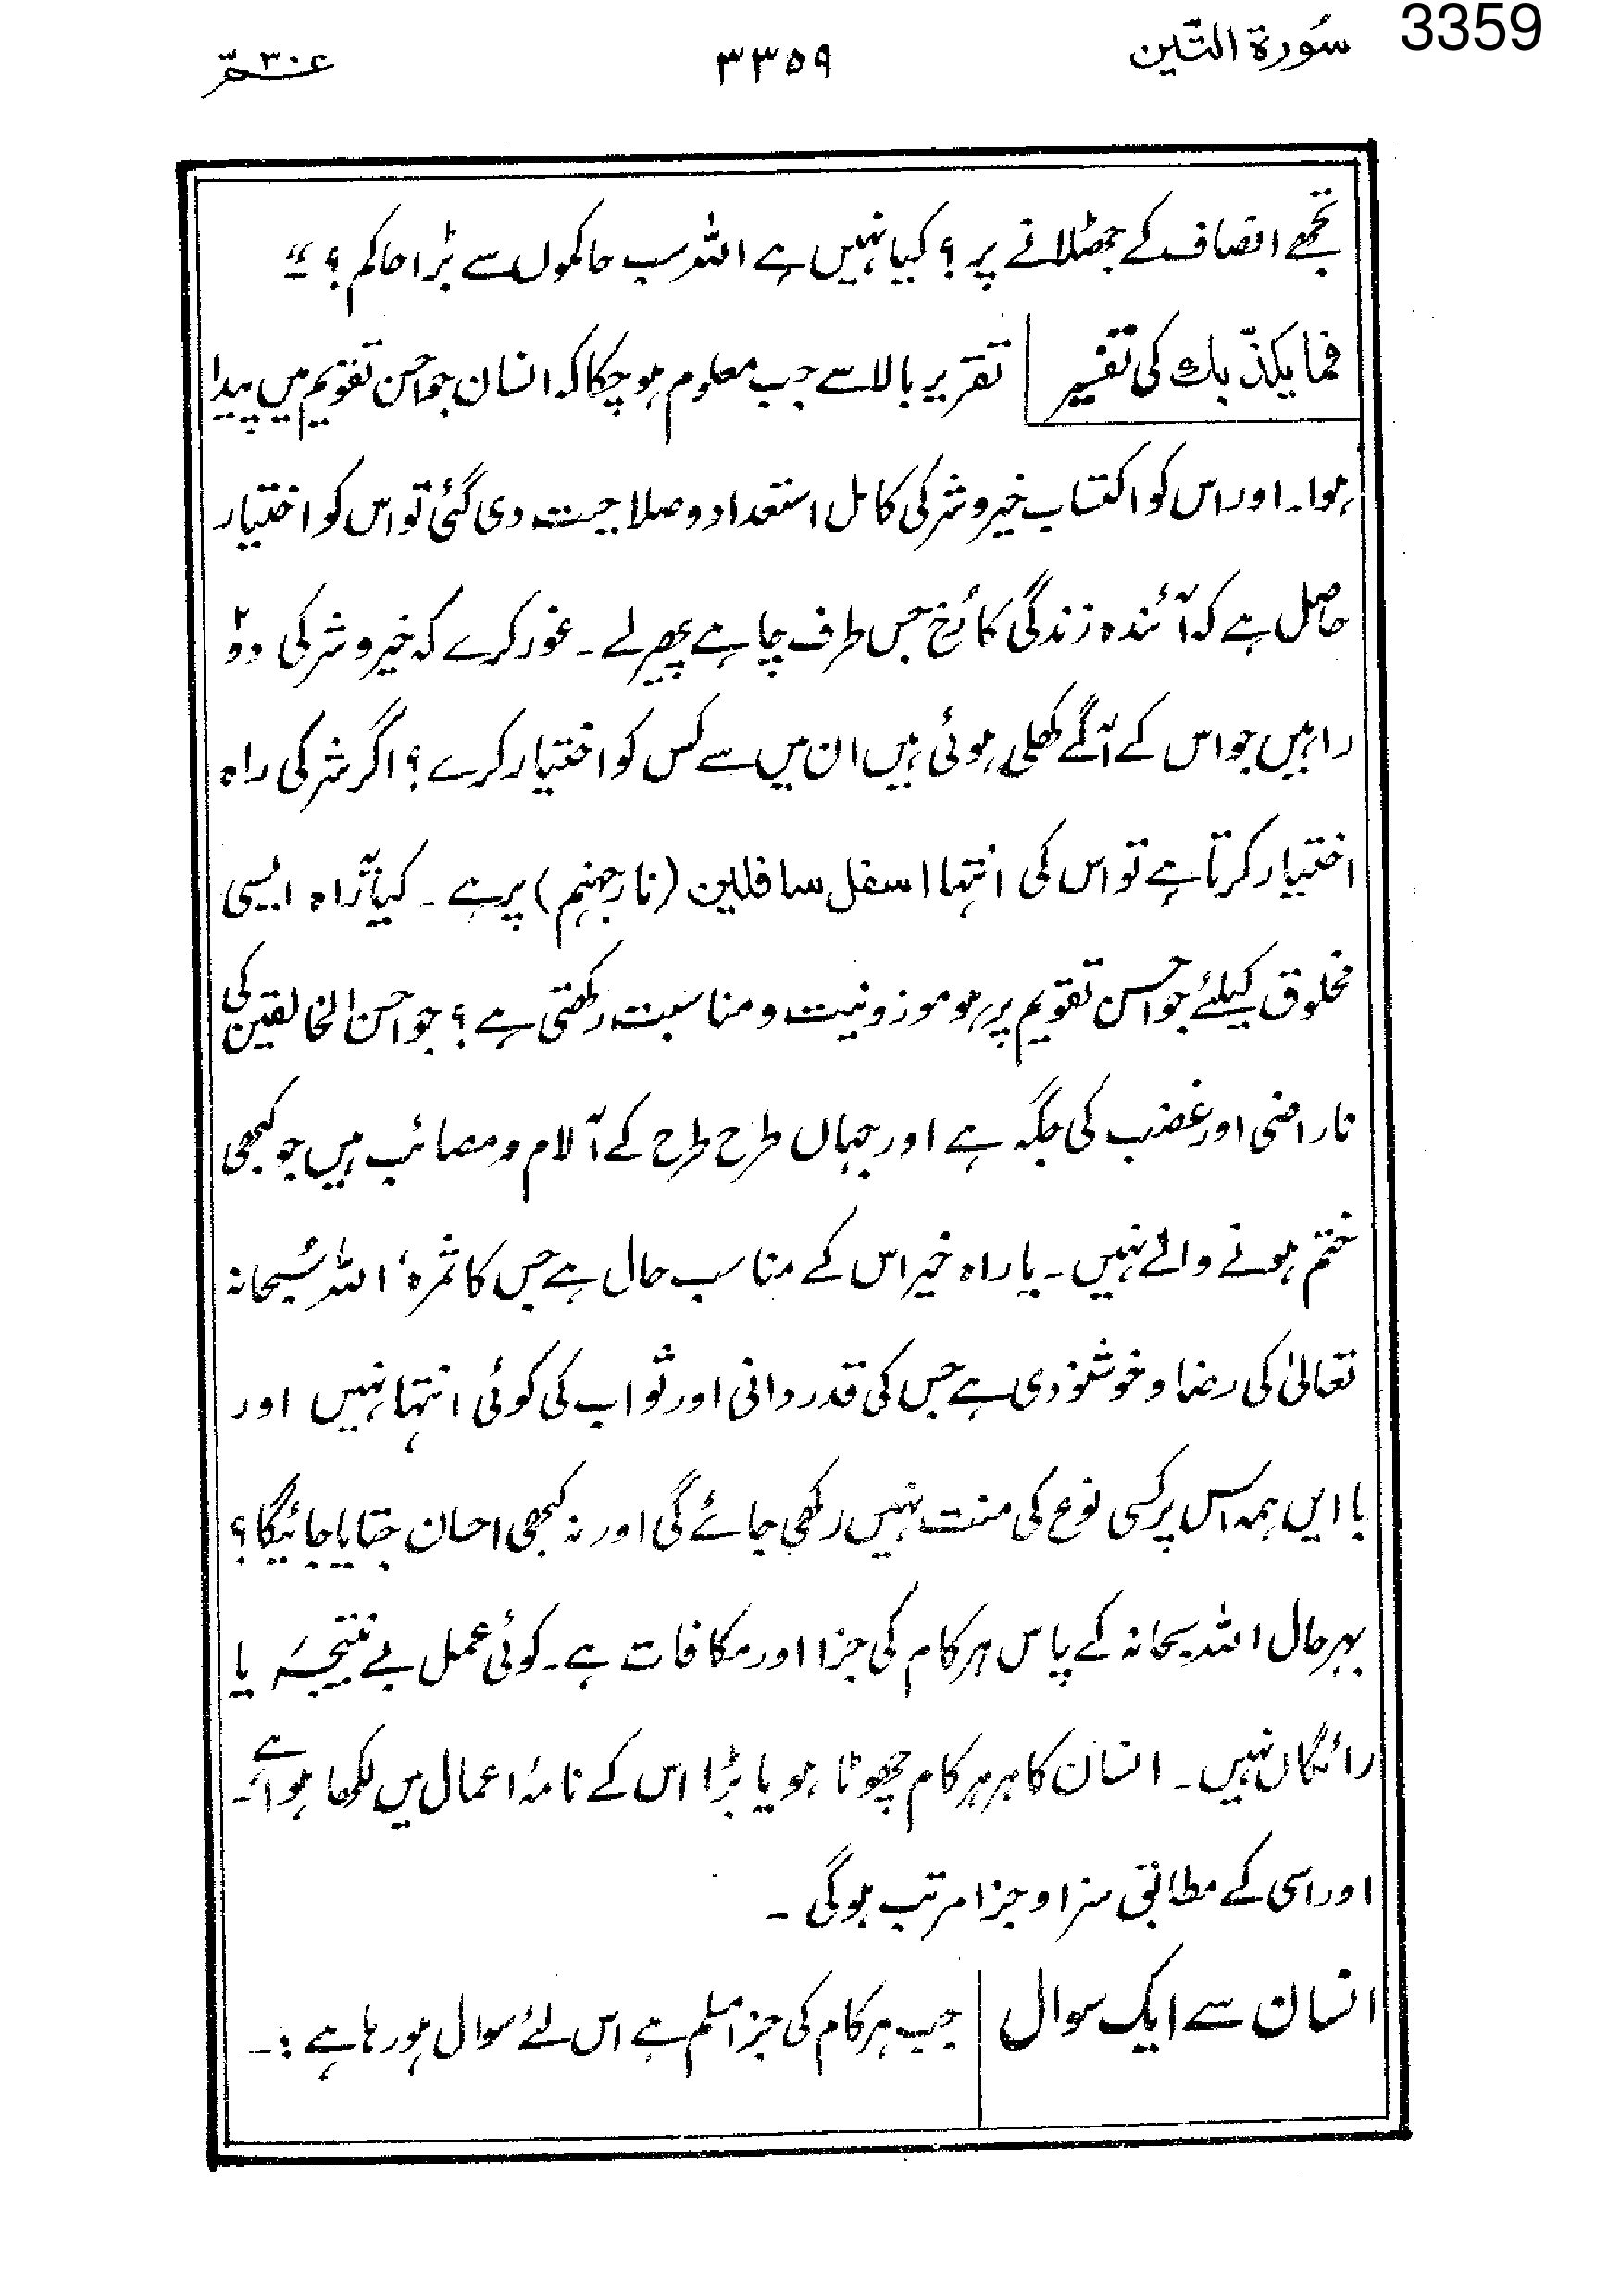 3359
سُورة التّین ۳۳۵۹ عمّ ۳۰
تجھے انصاف کے جھٹلانے پر؟ کیا نہیں ہے اللہ سب حاکموں سے بڑا حاکم؟ “
فما یکذّبك کی تفسیر تقریر بالا سے جب معلوم ہو چکا کہ انسان جو احسن تقویم میں پیدا
ہوا۔ اور اس کو اکتساب خیر و شر کی کامل استعداد و صلاحیت دی گئی تو اس کو اختیار
حاصل ہے کہ آئندہ زندگی کا رُخ جس طرف چاہے پھیر لے۔ غور کرے کہ خیر و شر کی دو۲
راہیں جو اس کے آگے کھلی ہوئی ہیں ان میں سے کس کو اختیار کرے؟ اگر شر کی راہ
اختیار کرتا ہے تو اس کی انتہا اسفل سافلین (نار جہنم) پر ہے۔ کیا یہ راہ ایسی
مخلوق کیلئے جو احسن تقویم پر ہو موزونیت و مناسبت رکھتی ہے؟ جو احسن الخالقین کی
ناراضی اور غضب کی جگہ ہے اور جہاں طرح طرح کے آلام و مصائب ہیں جو کبھی
ختم ہونے والے نہیں۔ یا راہ خیر اس کے مناسب حال ہے جس کا ثمرہ، اللہ سُبحانہ
تعالیٰ کی رضا و خوشنودی ہے جس کی قدردانی اور ثواب کی کوئی انتہا نہیں اور
با ایں ہمہ اس پر کسی نوع کی منت نہیں رکھی جائے گی اور نہ کبھی احسان جتایا جائیگا؟
بہرحال اللہ سبحانہ کے پاس ہر کام کی جزا اور مکافات ہے۔ کوئی عمل بے نتیجہ یا
رائگاں نہیں۔ انسان کا ہر ہر کام چھوٹا ہو یا بڑا اس کے نامۂ اعمال میں لکھا ہوا ہے۔
اور اسی کے مطابق سزا و جزا مرتب ہوگی۔
انسان سے ایک سوال جب ہر کام کی جزا مسلم ہے اس لئے سوال ہو رہا ہے :۔